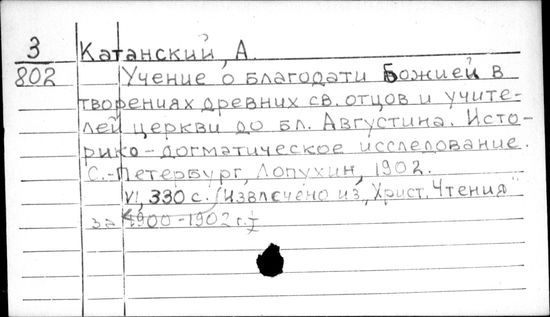 3 Катанский, А.
802 Учение о благодати Божией в
творениях древних св. отцов и учите-
лей церкви до бл. Августина. Исто-
рико-догматическое исследование.
С.-Петербург, Лопухин, 1902.
VI, 330 с. (Извлечено из „Христ. Чтения"
за 1900-1902 г.)